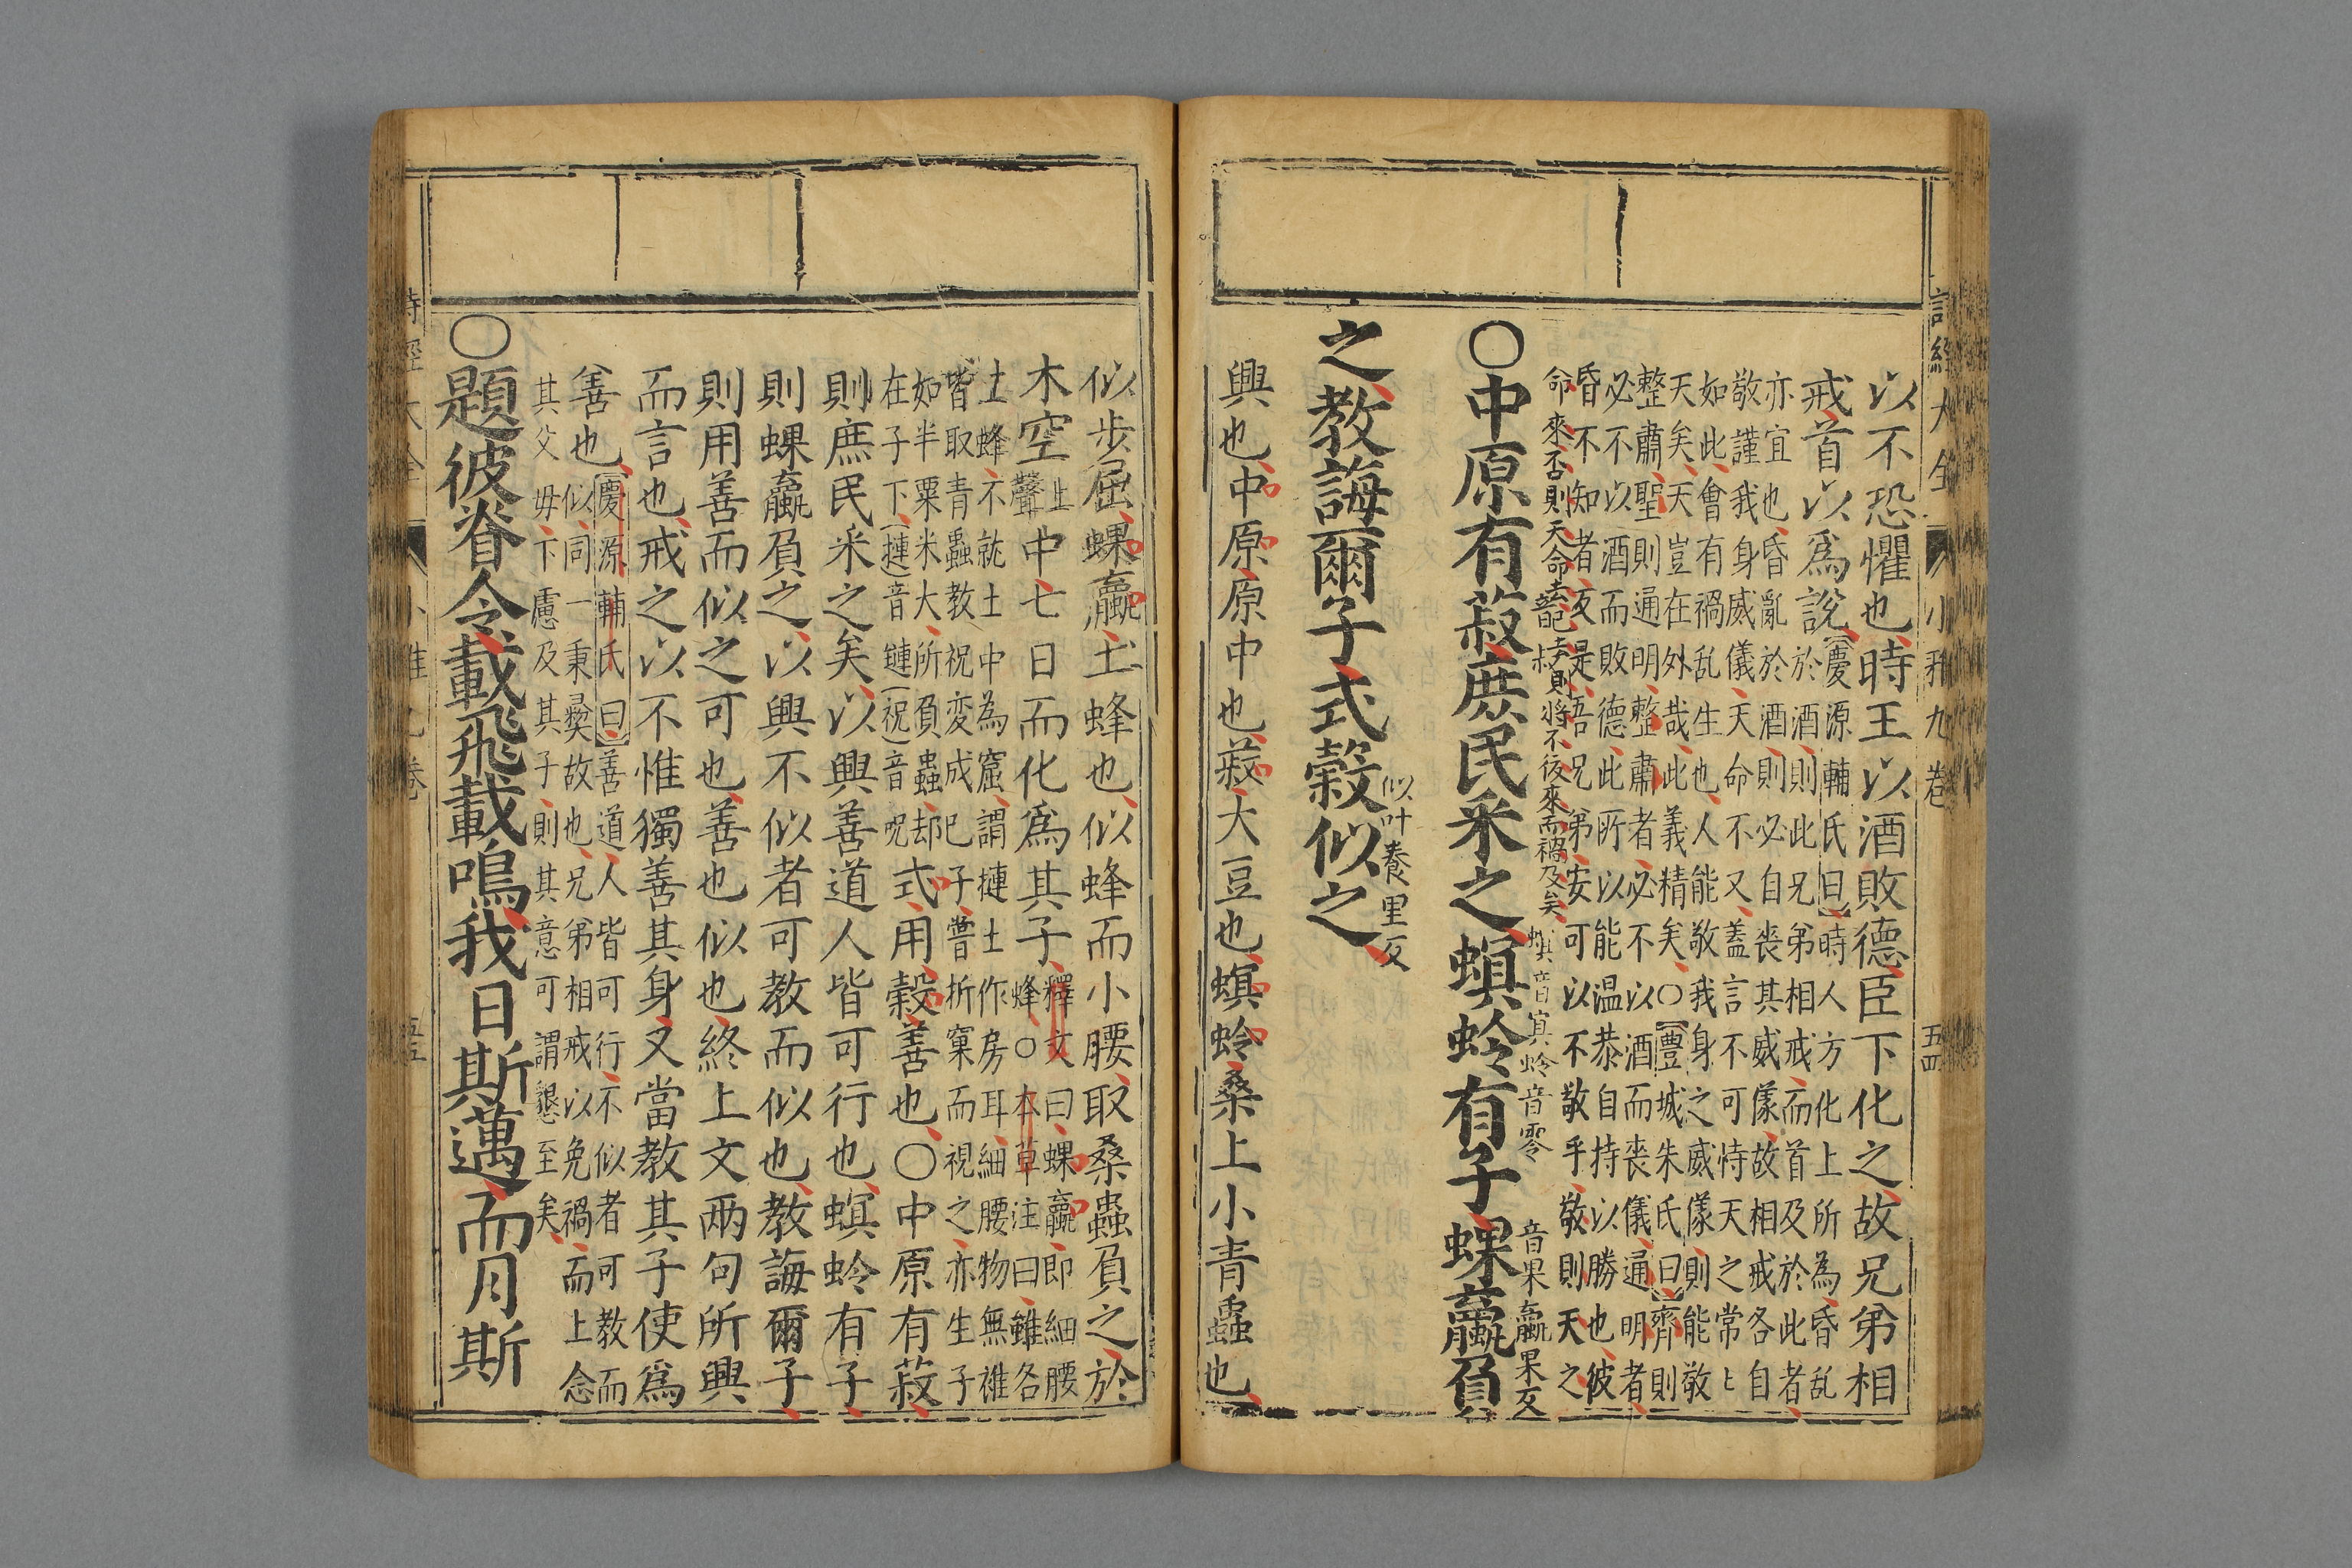 詩經大全　小雅九卷　五四
以不恐懼也時王以酒敗德臣下化之故兄弟相
戒首以爲說慶源輔氏曰時人方化上所為昏乱
於酒則此兄弟相戒而首及於此者
亦宜也昏亂於酒則必自丧其威儀故相戒各自
敬謹我身威儀天命不又蓋言不可恃天之常〻
如此會有禍乱生也人能敬我身之威儀則能敬
天矣天豈在外哉此義精矣○豐城朱氏曰齊則
整肅聖則通明整肅者必不以酒而丧儀通明者
必不以酒而敗德此所以能温恭自持以勝也彼
昏不知者反是吾兄弟安可以不敬乎敬則天之
命來否則天命去則將不復來而禍及矣
螟音寘蛉音零　音果蠃果反
○中原有菽庶民采之螟蛉有子蜾蠃負
似叶養里反
之教誨爾子式穀似之
興也中原原中也菽大豆也螟蛉桑上小青蟲也
似步屈蜾蠃土蜂也似蜂而小腰取桑蟲負之於
木空上聲中七日而化爲其子釋文曰蜾蠃即細腰
蜂○本草注曰雖名
土蜂不就土中為窟謂摙土作房耳細腰物無雌
皆取青蟲教祝変成已子嘗折窠而視之亦生子
如半粟米大所負蟲却
在子下(摙音鏈)(祝音呪)式用穀善也○中原有菽
則庶民采之矣以興善道人皆可行也螟蛉有子
則蜾蠃負之以興不似者可教而似也教誨爾子
則用善而似之可也善也似也終上文两句所興
而言也戒之以不惟獨善其身又當教其子使爲
善也慶源輔氏曰善道人皆可行不似者可教而
似同一秉彛故也兄弟相戒以免禍而上念
其父母下慮及其子則其意可謂懇至矣
○題彼脊令載飛載鳴我日斯邁而月斯